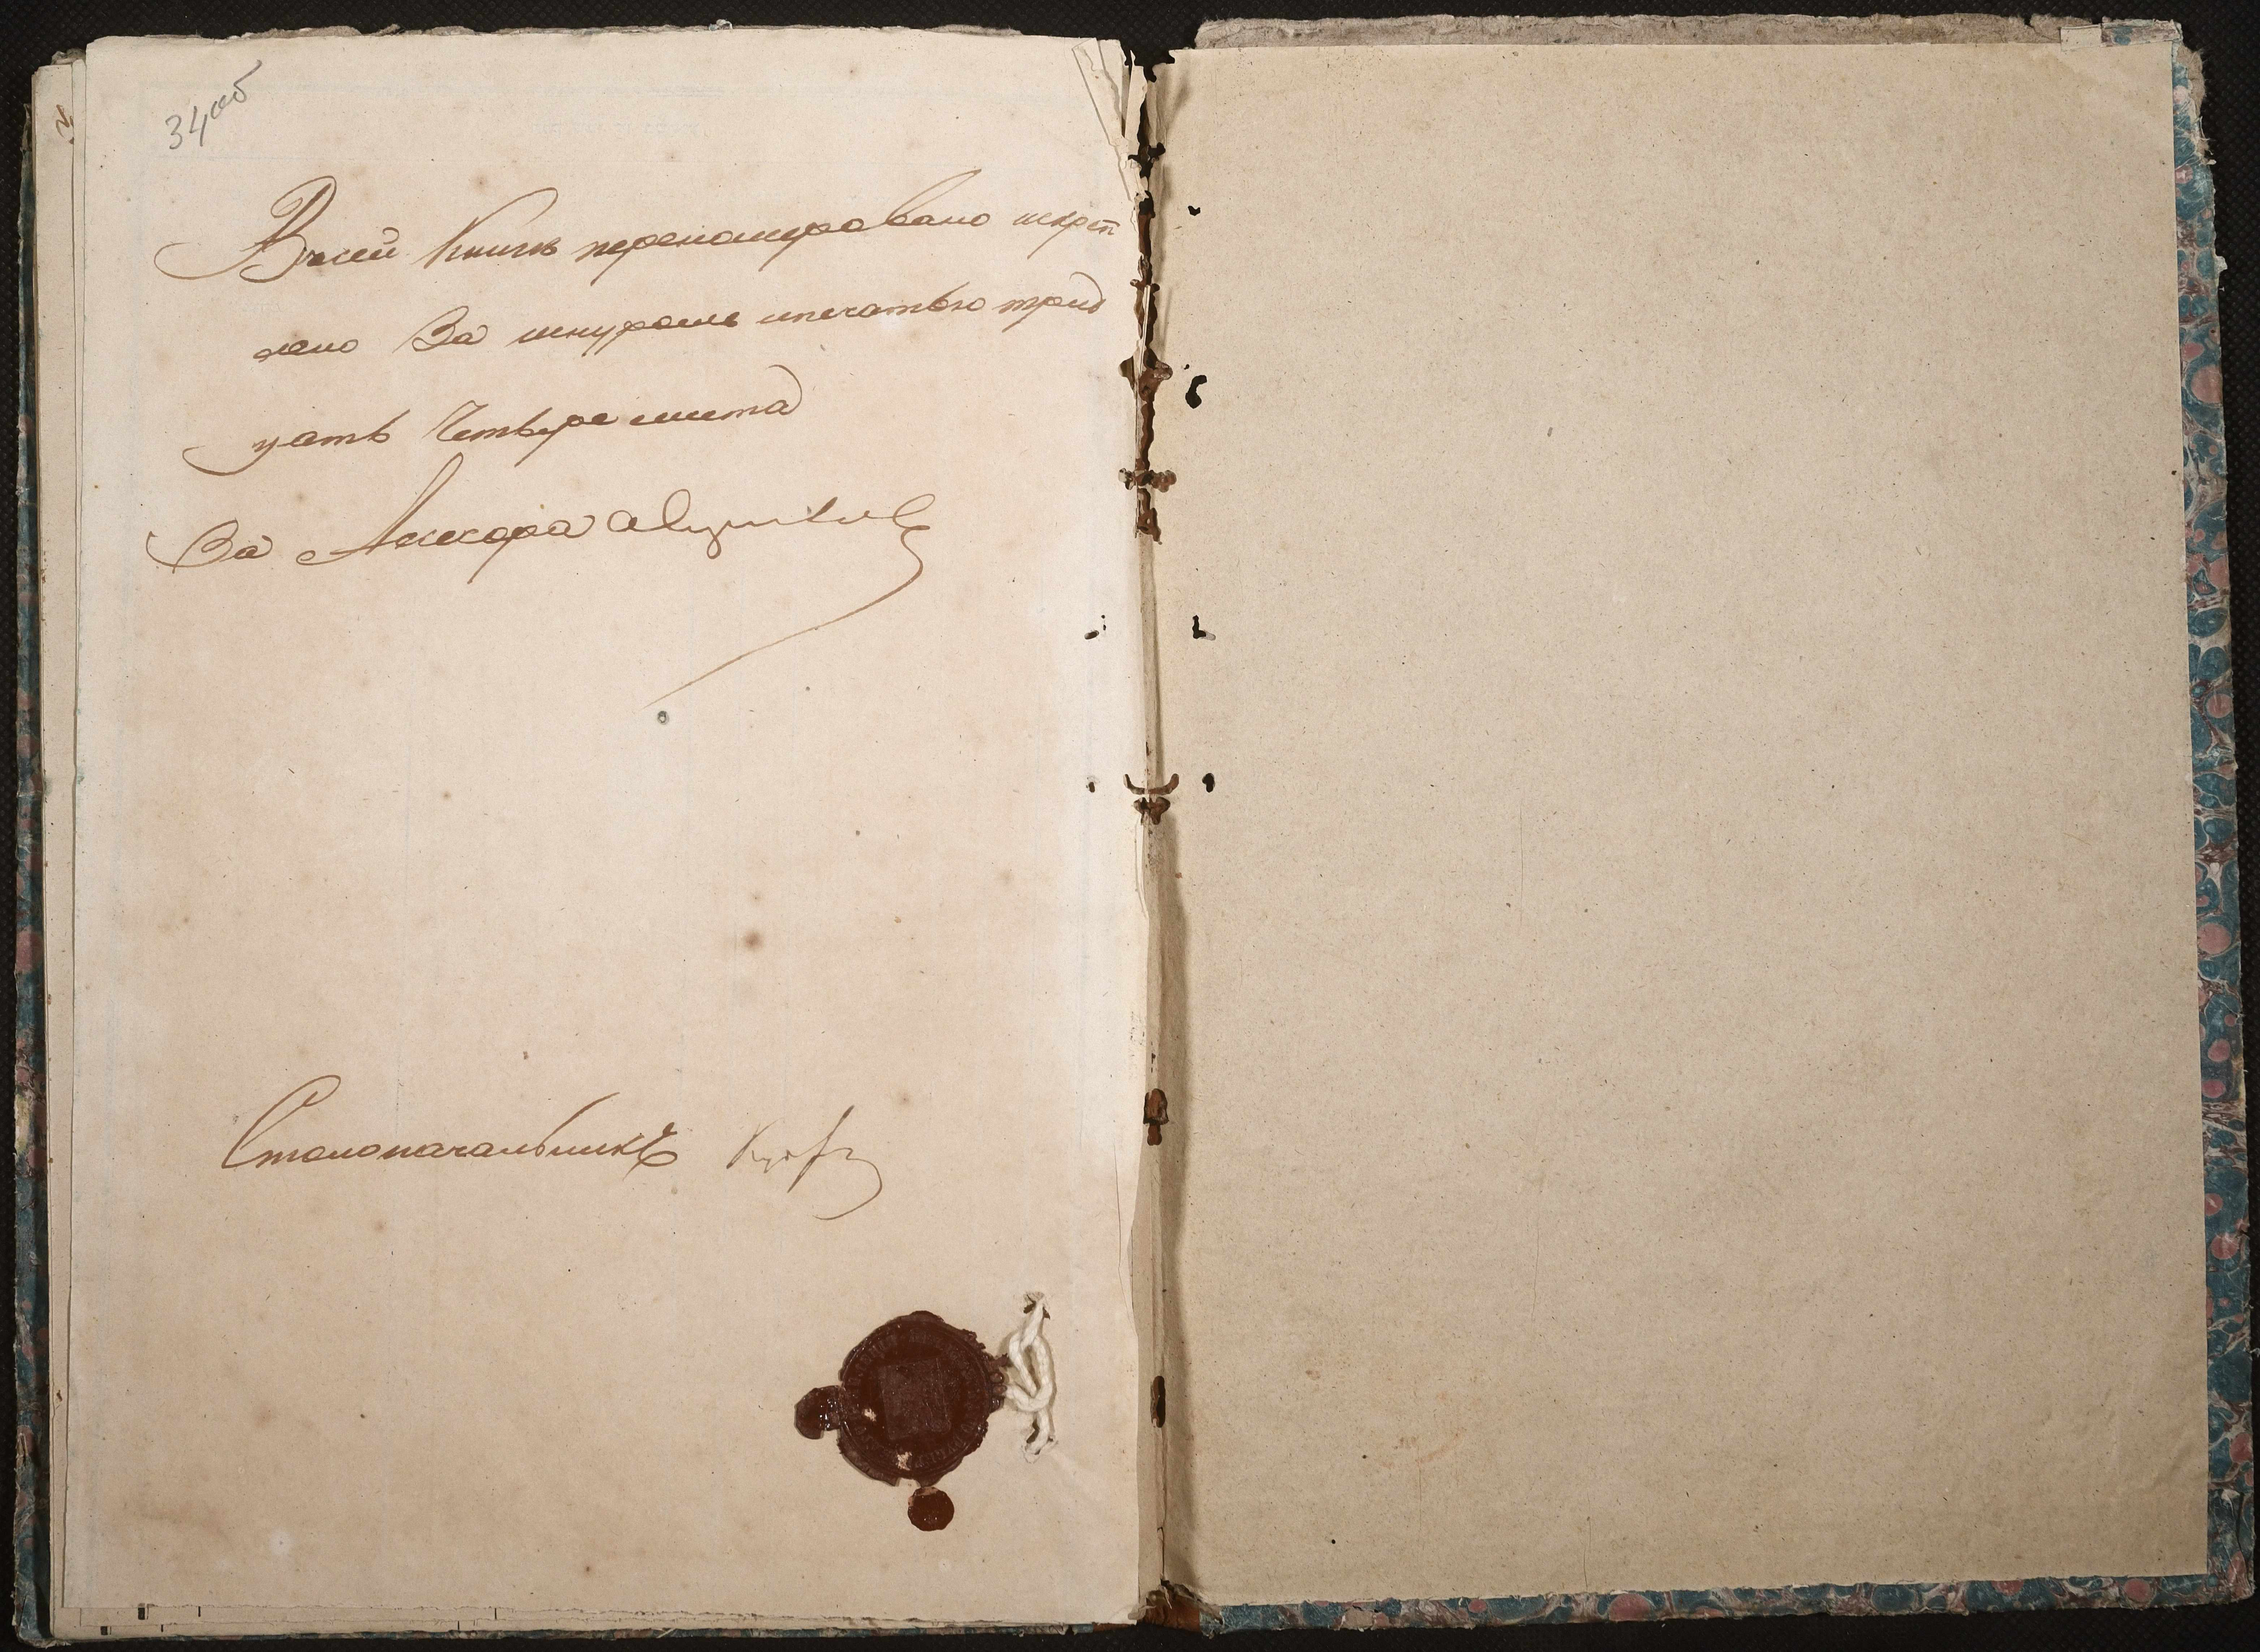 34 об
В сей Книгѣ перенумеровано искреп
лено За шнуромъ ипечатью трид
цать Четыре листа
За Ассесора
Столоначальникъ